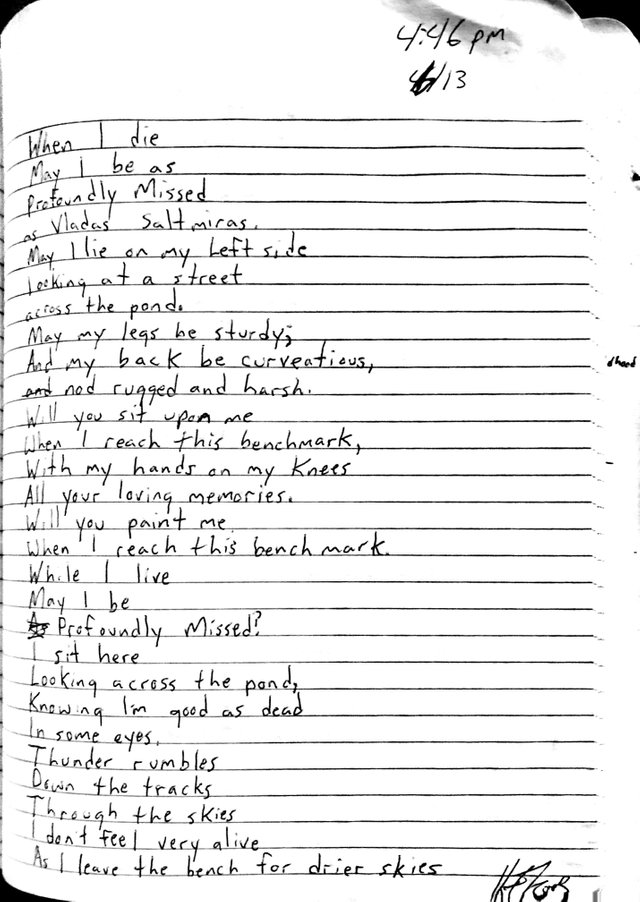 4:46 pm
4/13
When I die
May I be as
Profoundly Missed
as Vladas Saltmiras.
May I lie on my Left side
Looking at a street
across the pond.
May my legs be sturdy;
And my back be curveatious,
and nod rugged and harsh.
Will you sit upon me
When I reach this benchmark,
With my hands on my Knees
All your loving memories.
Will you paint me
When I reach this bench mark.
While I live
May I be
As Profoundly Missed?
I sit here
Looking across the pond,
Knowing I'm good as dead
In some eyes.
Thunder rumbles
Down the tracks
Through the skies
I don't feel very alive
As I leave the bench for drier skies